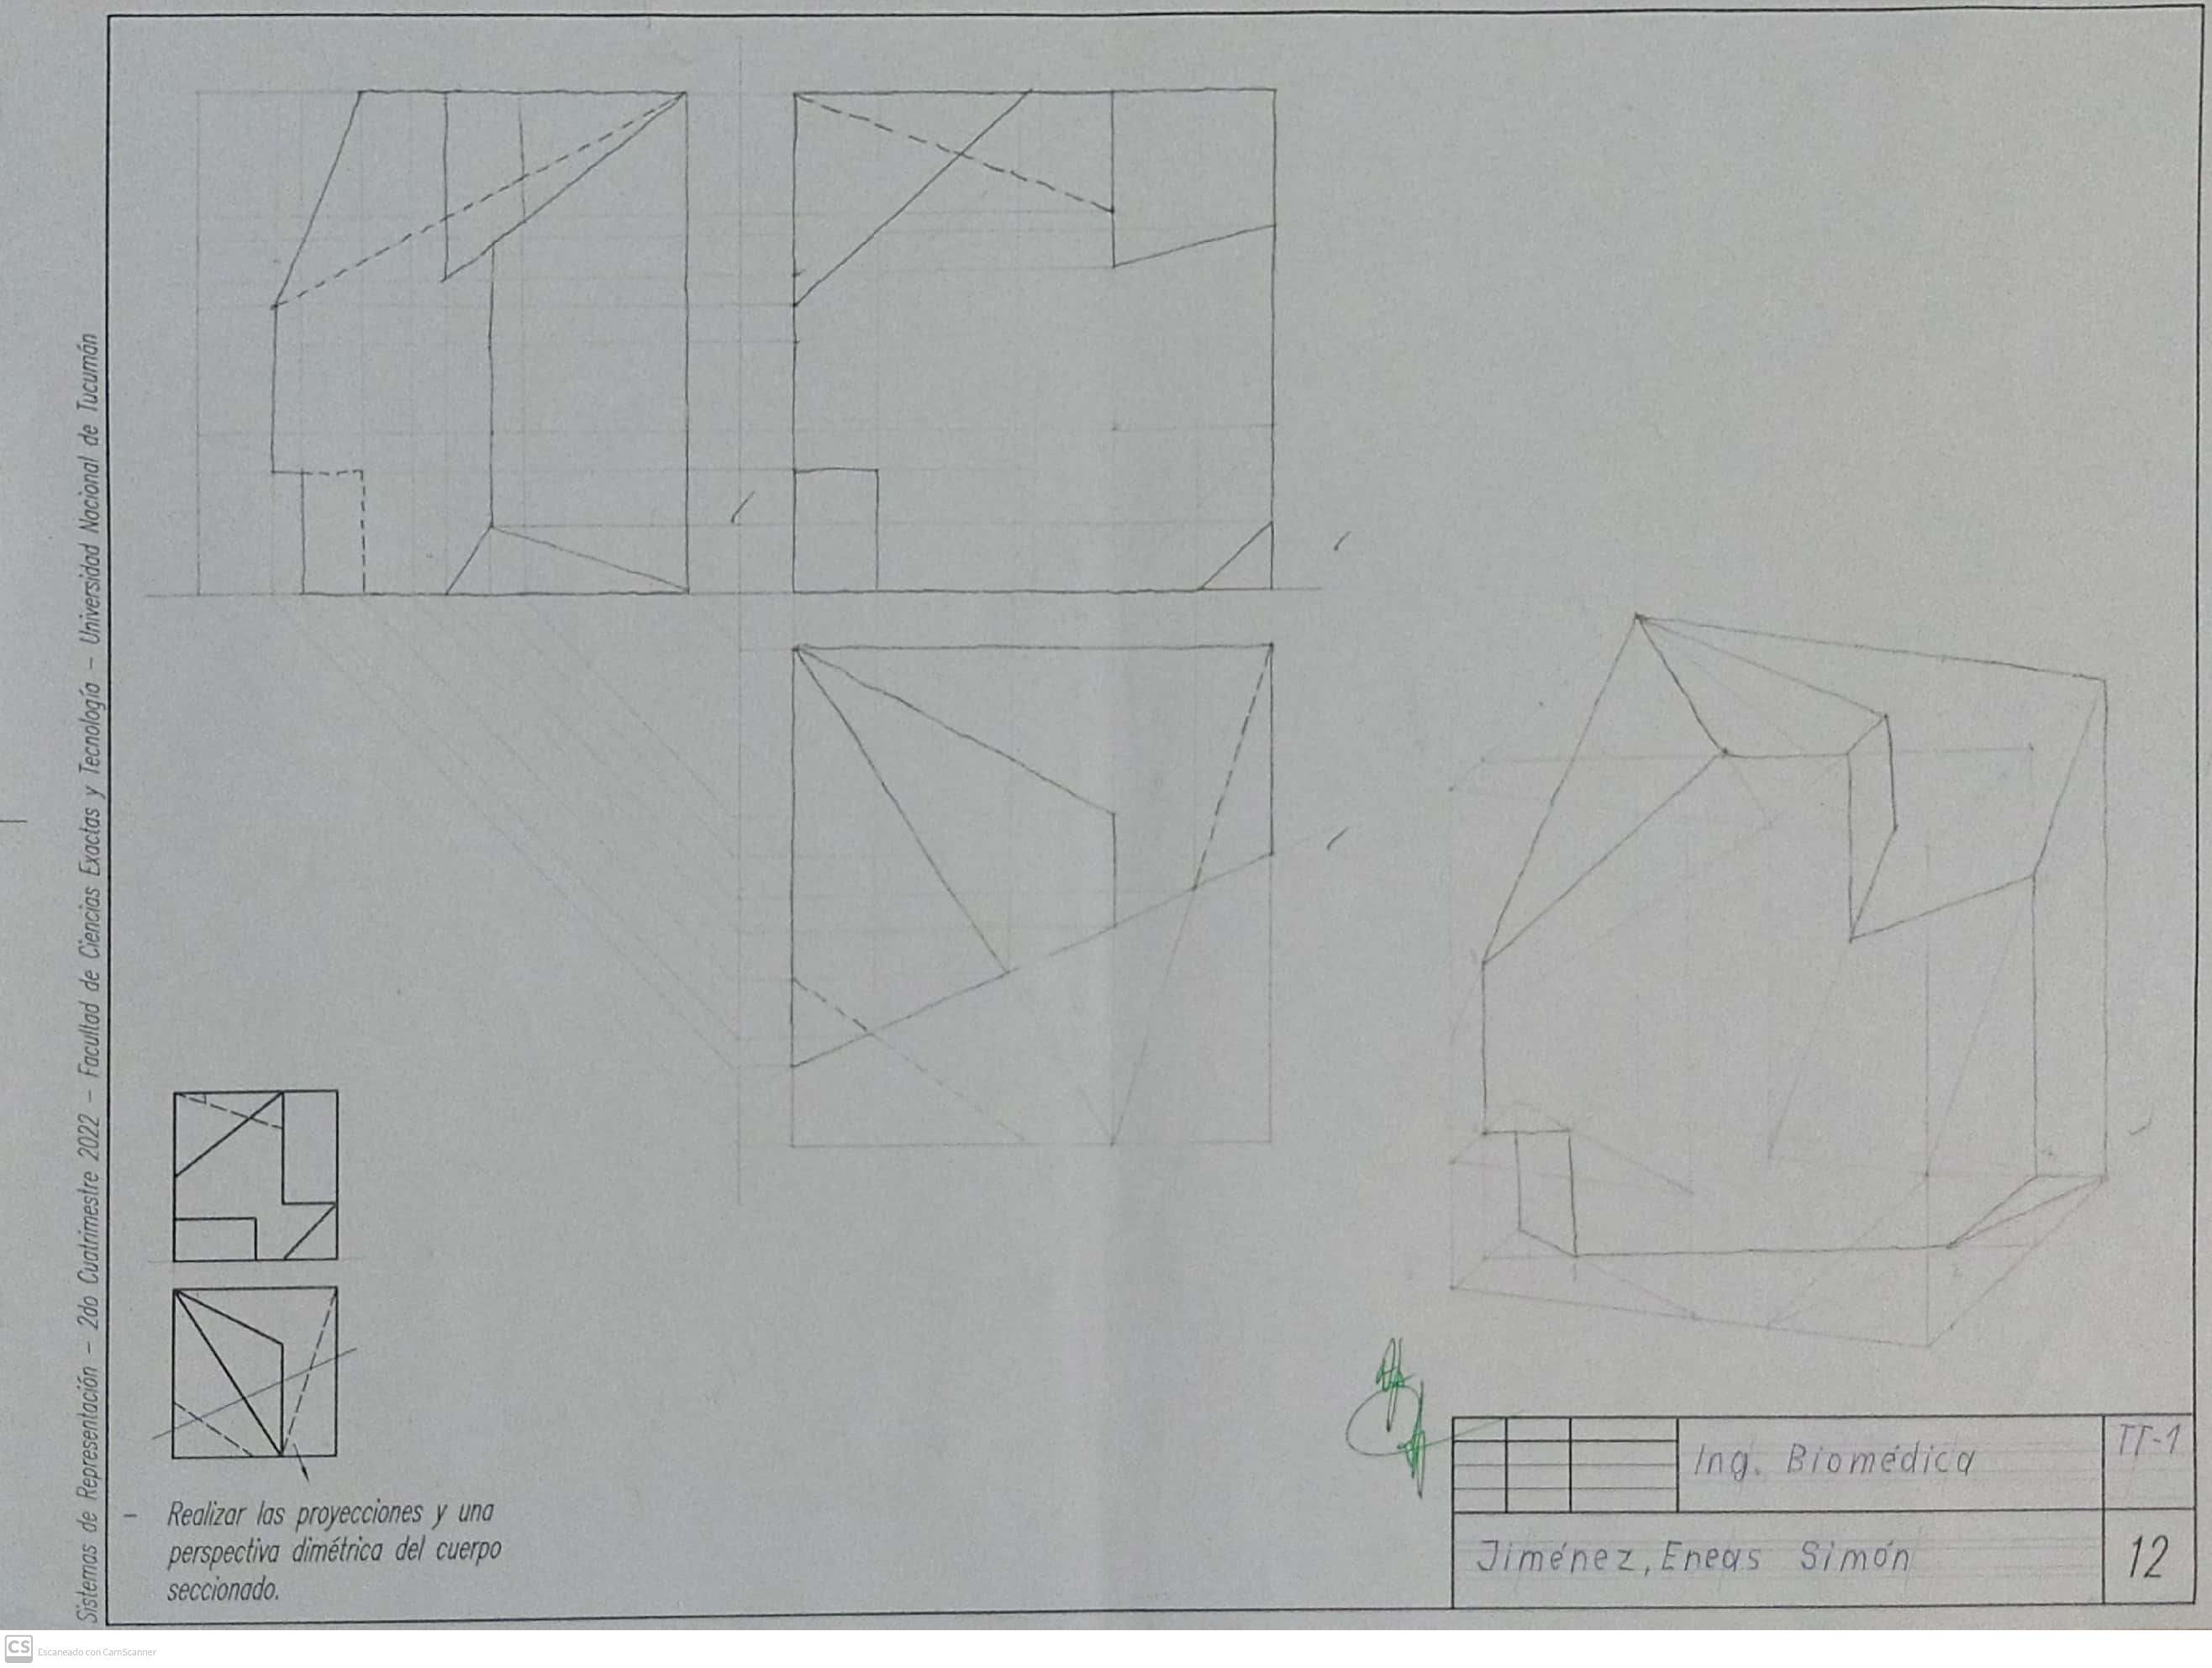 Sistemas de Representación – 2do Cuatrimestre 2022 – Facultad de Ciencias Exactas y Tecnología – Universidad Nacional de Tucumán
– Realizar las proyecciones y una
perspectiva dimétrica del cuerpo
seccionado.
Ing. Biomédica
TT-1
Jiménez, Eneas Simón
12
CS Escaneado con CamScanner